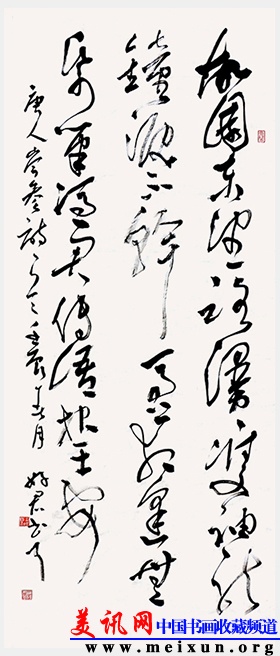 故園東望路漫〻雙袖龍
鐘淚不乾馬上相逢無
紙筆憑君傳語報平安
唐人岑參詩 壬辰 月
美讯网 中国书画收藏频道
www.meixun.org